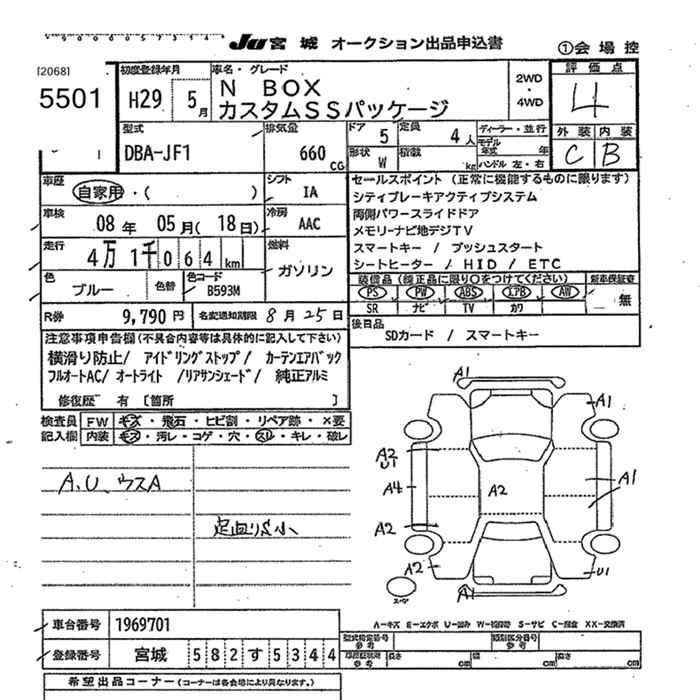 JU 宮城 オークション出品申込書 ①会場控
[2068]
5501
初度登録年月
H29 5月
車名・グレード
N BOX
カスタムSSパッケージ
2WD・4WD
評価点
4
外装 内装
C B
型式
DBA-JF1
排気量
660 CC
ドア 5 定員 4人
形状 W 積載 kg
ディーラー・並行
モデル年式 年
ハンドル 左・右
車歴
自家用・( )
シフト
IA
車検
08年 05月(18日)
冷房
AAC
走行
4万1千064km
燃料
ガソリン
色
ブルー
色替
色コード
B593M
R券 9,790円 名変通知期限 8月25日
セールスポイント (正常に機能するものに限ります)
シティブレーキアクティブシステム
両側パワースライドドア
メモリーナビ地デジTV
スマートキー / プッシュスタート
シートヒーター / HID / ETC
装備品 (純正品に限り○をつけてください) 新車保証書
PS PW ABS エアB AW 無
SR ナビ TV カワ
後日品
SDカード / スマートキー
注意事項申告欄(不具合内容等は具体的に記入して下さい)
横滑り防止/ アイドリングストップ/ カーテンエアバック
フルオートAC/ オートライト /リアサンシェード/ 純正アルミ
修復歴 有 [箇所 ]
検査員記入欄
FW キズ・飛石・ヒビ割・リペア跡・×要
内装 キズ・汚レ・コゲ・穴・スレ・キレ・破レ
A.U.ウスA
足回りS小
A1
A1
A2
U1
A4
A2
A2
A2
A1
U1
A1
スペア
A-キズ E-エクボ U-凹み W-補修跡 S-サビ C-腐食 XX-交換済
車台番号 1969701
登録番号 宮城 582 す 5344
型式指定番号 参考
類別区分番号 参考
長さ cm 幅 cm 高さ cm
希望出品コーナー (コーナーは各会場により異なります。)